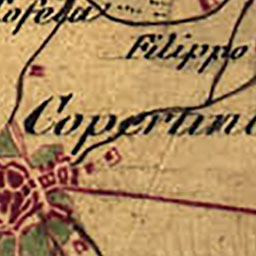 Tofela
Filippo
Copertin